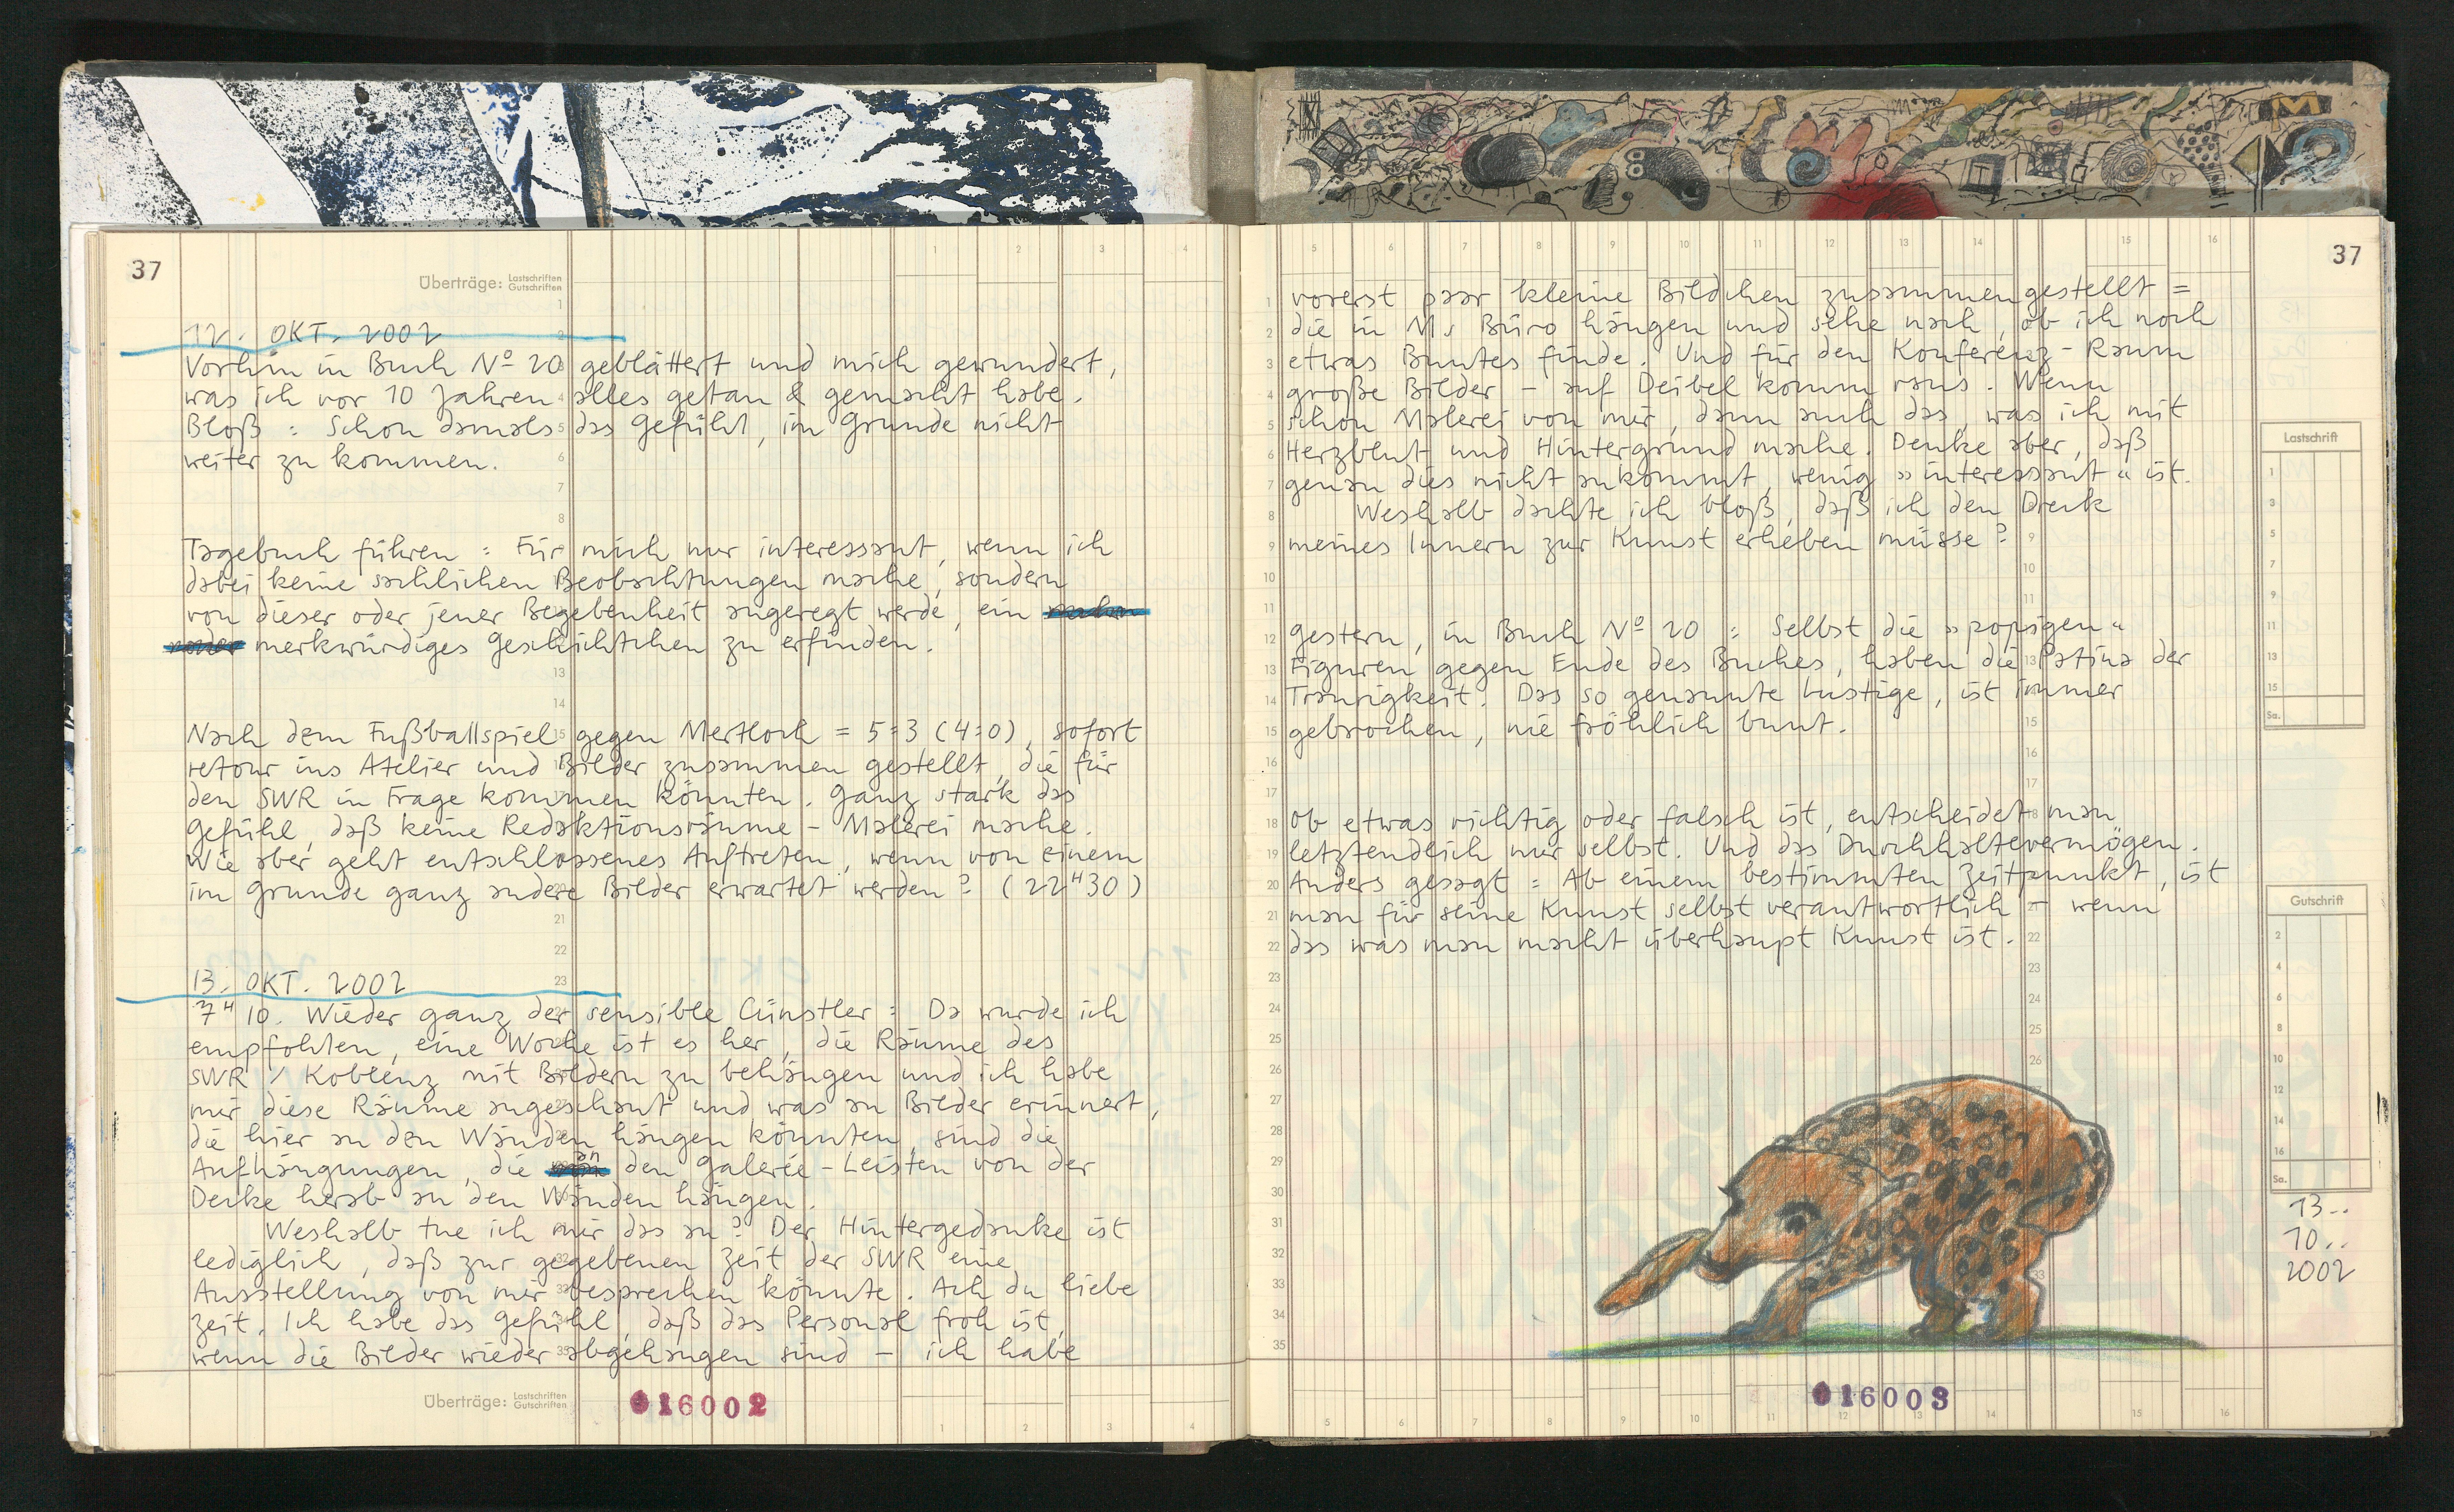 37
Überträge: Lastschriften
Gutschriften
12. OKT. 2002
Vorhin in Buch Nº 20 geblättert und mich gewundert,
was ich vor 10 Jahren alles getan & gemacht habe.
Bloß : Schon damals das Gefühl, im Grunde nicht
weiter zu kommen.
Tagebuch führen : Für mich nur interessant, wenn ich
dabei keine sachlichen Beobachtungen mache, sondern
von dieser oder jener Begebenheit angeregt werde, ein
merkwürdiges Geschichtchen zu erfinden.
Nach dem Fußballspiel gegen Mertloch = 5:3 (4:0), sofort
retour ins Atelier und Bilder zusammen gestellt, die für
den SWR in Frage kommen könnten. Ganz stark das
Gefühl, daß keine Redaktionsräume - Malerei mache.
Wie aber geht entschlossenes Auftreten, wenn von einem
im Grunde ganz andere Bilder erwartet werden? (22ᴴ30)
13. OKT. 2002
7ᴴ10. Wieder ganz der sensible Cünstler : Da wurde ich
empfohlen, eine Woche ist es her, die Räume des
SWR / Koblenz mit Bildern zu behängen und ich habe
mir diese Räume angeschaut und was an Bilder erinnert,
die hier an den Wänden hängen könnten, sind die
Aufhängungen, die an den Galerie-Leisten von der
Decke herab an den Wänden hängen.
Weshalb tue ich mir das an? Der Hintergedanke ist
lediglich, daß zur gegebenen Zeit der SWR eine
Ausstellung von mir besprechen könnte. Ach du liebe
Zeit. Ich habe das Gefühl, daß das Personal froh ist,
wenn die Bilder wieder abgehangen sind - ich habe
Überträge: Lastschriften
Gutschriften
016002
37
vorerst paar kleine Bildchen zusammengestellt =
die in Ms Büro hängen und sehe nach, ob ich noch
etwas Buntes finde. Und für den Konferenz-Raum
große Bilder - auf Deibel komm raus. Wenn
schon Malerei von mir, dann auch das, was ich mit
Herzblut und Hintergrund mache. Denke aber, daß
genau dies nicht ankommt, wenig »interessant« ist.
Weshalb dachte ich bloß, daß ich den Dreck
meines Innern zur Kunst erheben müsse?
Gestern, in Buch Nº 20 : Selbst die »popigen«
Figuren gegen Ende des Buches, haben die Patina der
Traurigkeit. Das so genannte Lustige, ist immer
gebrochen, nie fröhlich bunt.
Ob etwas richtig oder falsch ist, entscheidet man
letztendlich nur selbst. Und das Durchhaltevermögen.
Anders gesagt : Ab einem bestimmten Zeitpunkt, ist
man für seine Kunst selbst verantwortlich - wenn
das was man macht überhaupt Kunst ist.
Lastschrift
Sa.
Gutschrift
Sa.
13..
10..
2002
016003